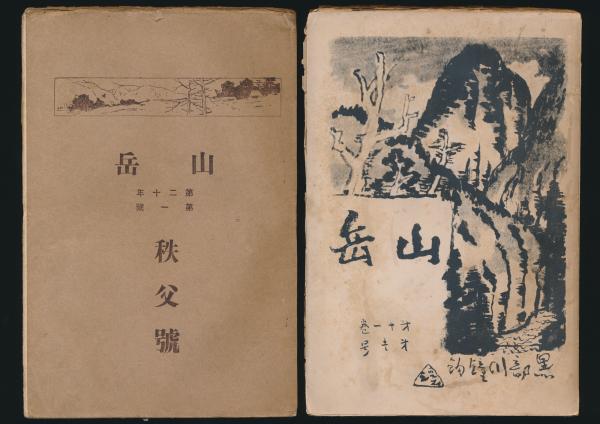 山岳
第二十年
第一號
秩父號
山岳
才十一巻
才 号
黒部川鐘釣